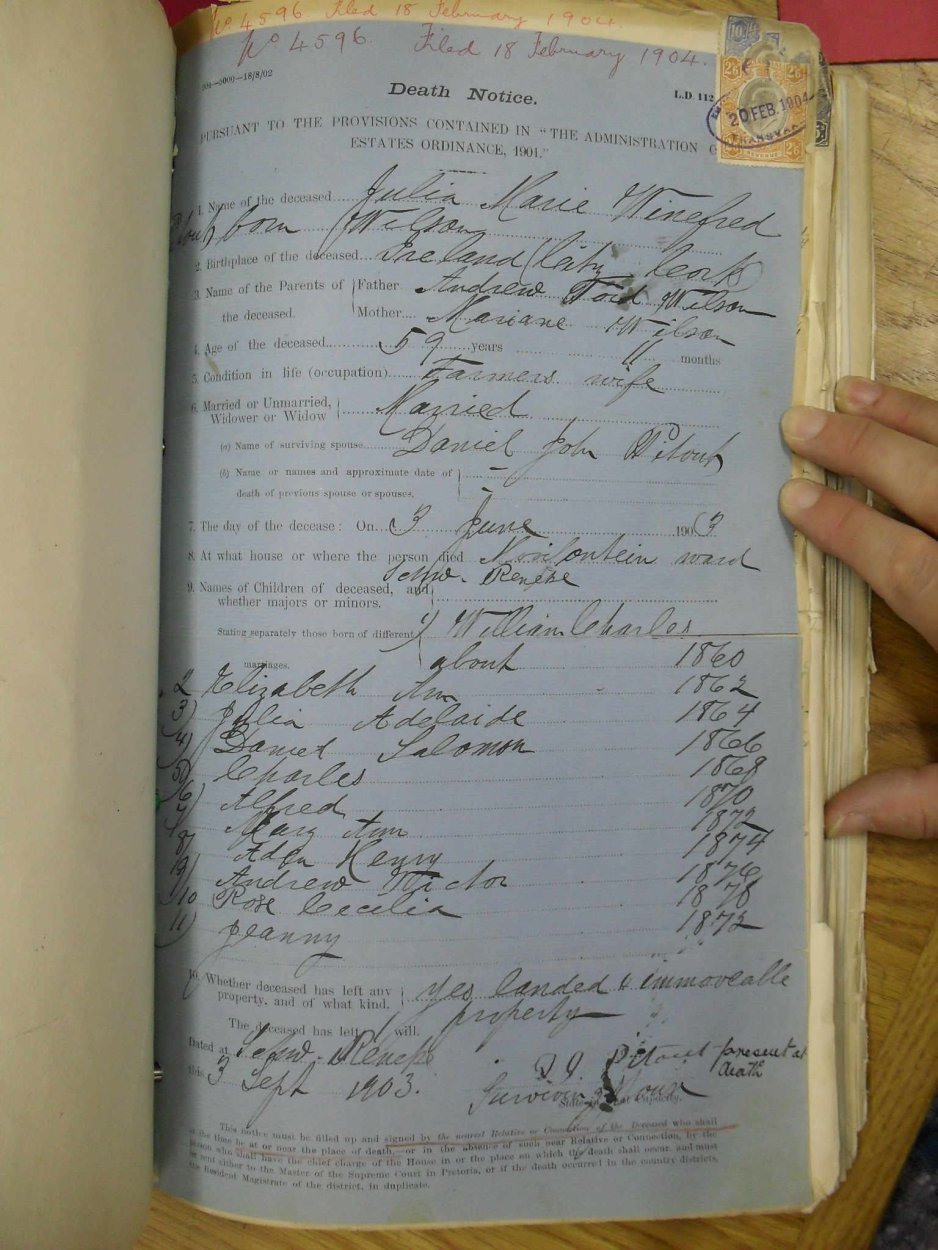 No 4596 Filed 18 February 1904.
No 4596. Filed 18 February 1904.
5000—18/8/02
Death Notice.
L.D. 112
20 FEB. 1904
TRANSVAAL
2/6 2/6
REVENUE
PURSUANT TO THE PROVISIONS CONTAINED IN "THE ADMINISTRATION
ESTATES ORDINANCE, 1901."
1. Name of the deceased Julia Marie Winefred
born Wilson
2. Birthplace of the deceased Ireland (City Cork)
3. Name of the Parents of the deceased. Father Andrew Wilson
Mother Mariane Wilson
4. Age of the deceased 59 years 11 months
5. Condition in life (occupation) Farmers wife
6. Married or Unmarried, Widower or Widow Married
(a) Name of surviving spouse Daniel John Pitout
(b) Name or names and approximate date of death of previous spouse or spouses. —
7. The day of the decease: On 3 June 1903
8. At what house or where the person died ward
Schw. Reneke
9. Names of Children of deceased, and whether majors or minors.
Stating separately those born of different marriages.
1) William Charles
about 1860
2 Elizabeth Ann 1862
3) Julia Adelaide 1864
4) Daniel Salomon 1866
5) Charles 1868
6) Alfred 1870
7) Mary Ann 1872
8) Henry 1874
9) Andrew Victor 1876
10 Rose Cecilia 1878
11) Jeanny 1872
10. Whether deceased has left any property, and of what kind. yes landed & immoveable
property
The deceased has left will.
Dated at Schw. Reneke
this 3 Sept 1903.
D. J. Pitout present at
death
Surviving Spouse
State in what Capacity.
This notice must be filled up and signed by the nearest Relative or Connection of the Deceased who shall
at the time be at or near the place of death,—or in the absence of such near Relative or Connection, by the
person who shall have the chief charge of the House in or the place on which the death shall occur, and must
be sent either to the Master of the Supreme Court in Pretoria, or if the death occurred in the country districts,
the Resident Magistrate of the district, in duplicate.